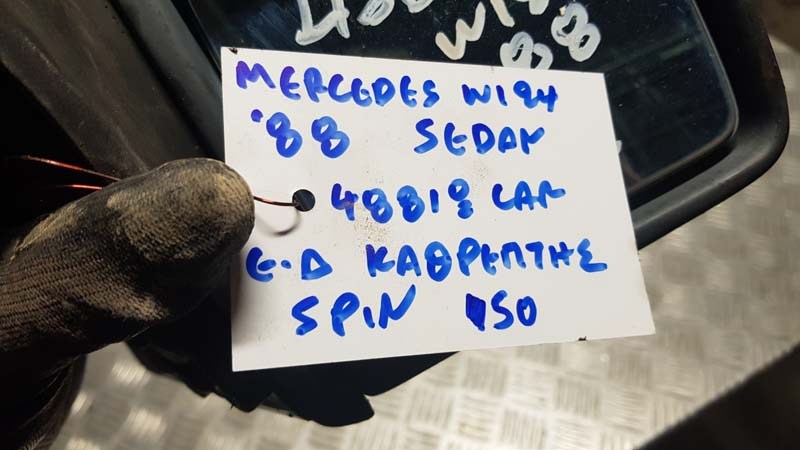 MERCEDES W124
'88 SEDAN
48818 CAR
Ε.Δ ΚΑΘΡΕΠΤΗΣ
SPIN 150